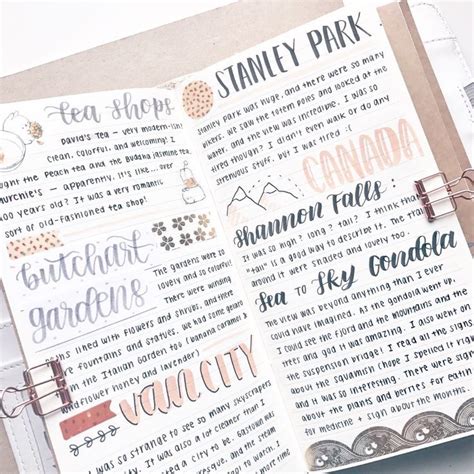 tea shops
David's Tea - very modern-ish!
Clean, colorful, and welcoming! I
ought the Peach tea and the Buddha Jasmine tea.
urchie's - apparently, it's like...
400 years old? It was a very romantic
sort of old-fashioned tea shop!
butchart
gardens
The gardens were so
lovely and so colorful!
There were winding
lined with flowers and shrubs, and there
re fountains and statues. We had some gelato
in the Italian Garden too (banana caramel &
wildflower honey and lavender)
VAN CITY
was so strange to see so many skyscrapers
It was also a lot cleaner than I
STANLEY PARK
Stanley Park was huge, and there were so many
others. We saw the totem poles and looked at the
water, and the view was incredible. I was so
tired though! I didn't even walk or do any
strenuous stuff, but I was tired :(
CANADA
Shannon Falls:
It was so high? long? tall? I think that
"tall" is a good way to describe it. The
around it were shaded and lovely too.
Sea to Sky Gondola
The view was beyond anything than I ever
could have imagined. As the gondola went up,
I could see the fjord and the mountains and the
trees and god it was amazing. I also went on
the suspension bridge! I read all the signs
about the Squamish (hope I spelled it right)
and it was so interesting. There were signs
about the plants and berries for eating
for medicine + sign about the mountains.